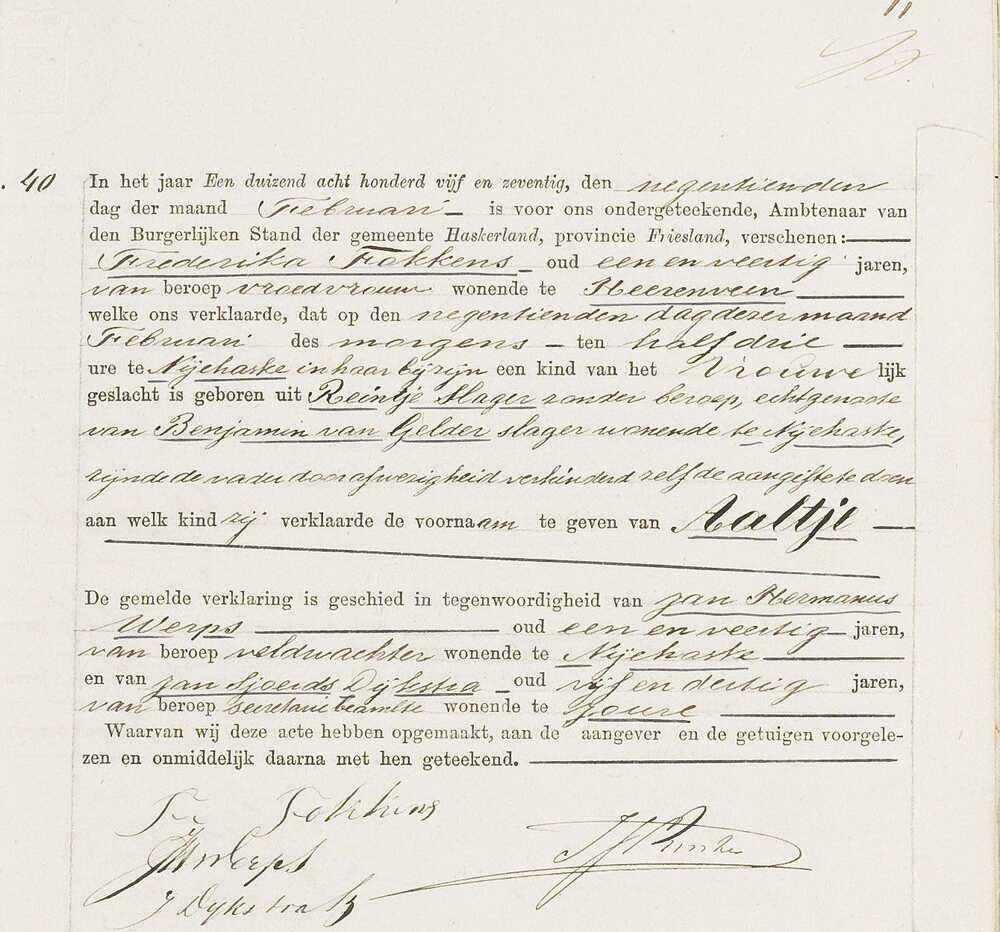 11
40
In het jaar Een duizend acht honderd vijf en zeventig, den negentienden
dag der maand Februari is voor ons ondergeteekende, Ambtenaar van
den Burgerlijken Stand der gemeente Haskerland, provincie Friesland, verschenen:
Frederika Fokkens oud een en veertig jaren,
van beroep vroedvrouw wonende te Heerenveen
welke ons verklaarde, dat op den negentienden dag dezer maand
Februari des morgens ten half drie
ure te Nijehaske in haar bijzijn een kind van het Vrouwelijk
geslacht is geboren uit Reintje Slager zonder beroep, echtgenoote
van Benjamin van Gelder slager wonende te Nijehaske,
zijnde de vader door afwezigheid verhinderd zelf de aangifte te doen
aan welk kind zij verklaarde de voornaam te geven van Aaltje
De gemelde verklaring is geschied in tegenwoordigheid van Jan Hermanus
Werps oud een en veertig jaren,
van beroep veldwachter wonende te Nijehaske
en van Jan Sjoerds Dijkstra oud vijf en dertig jaren,
van beroep secretarie beambte wonende te Joure
Waarvan wij deze acte hebben opgemaakt, aan de aangever en de getuigen voorgele-
zen en onmiddelijk daarna met hen geteekend.
Fr Fokkens
JHWerps
J Dijkstra